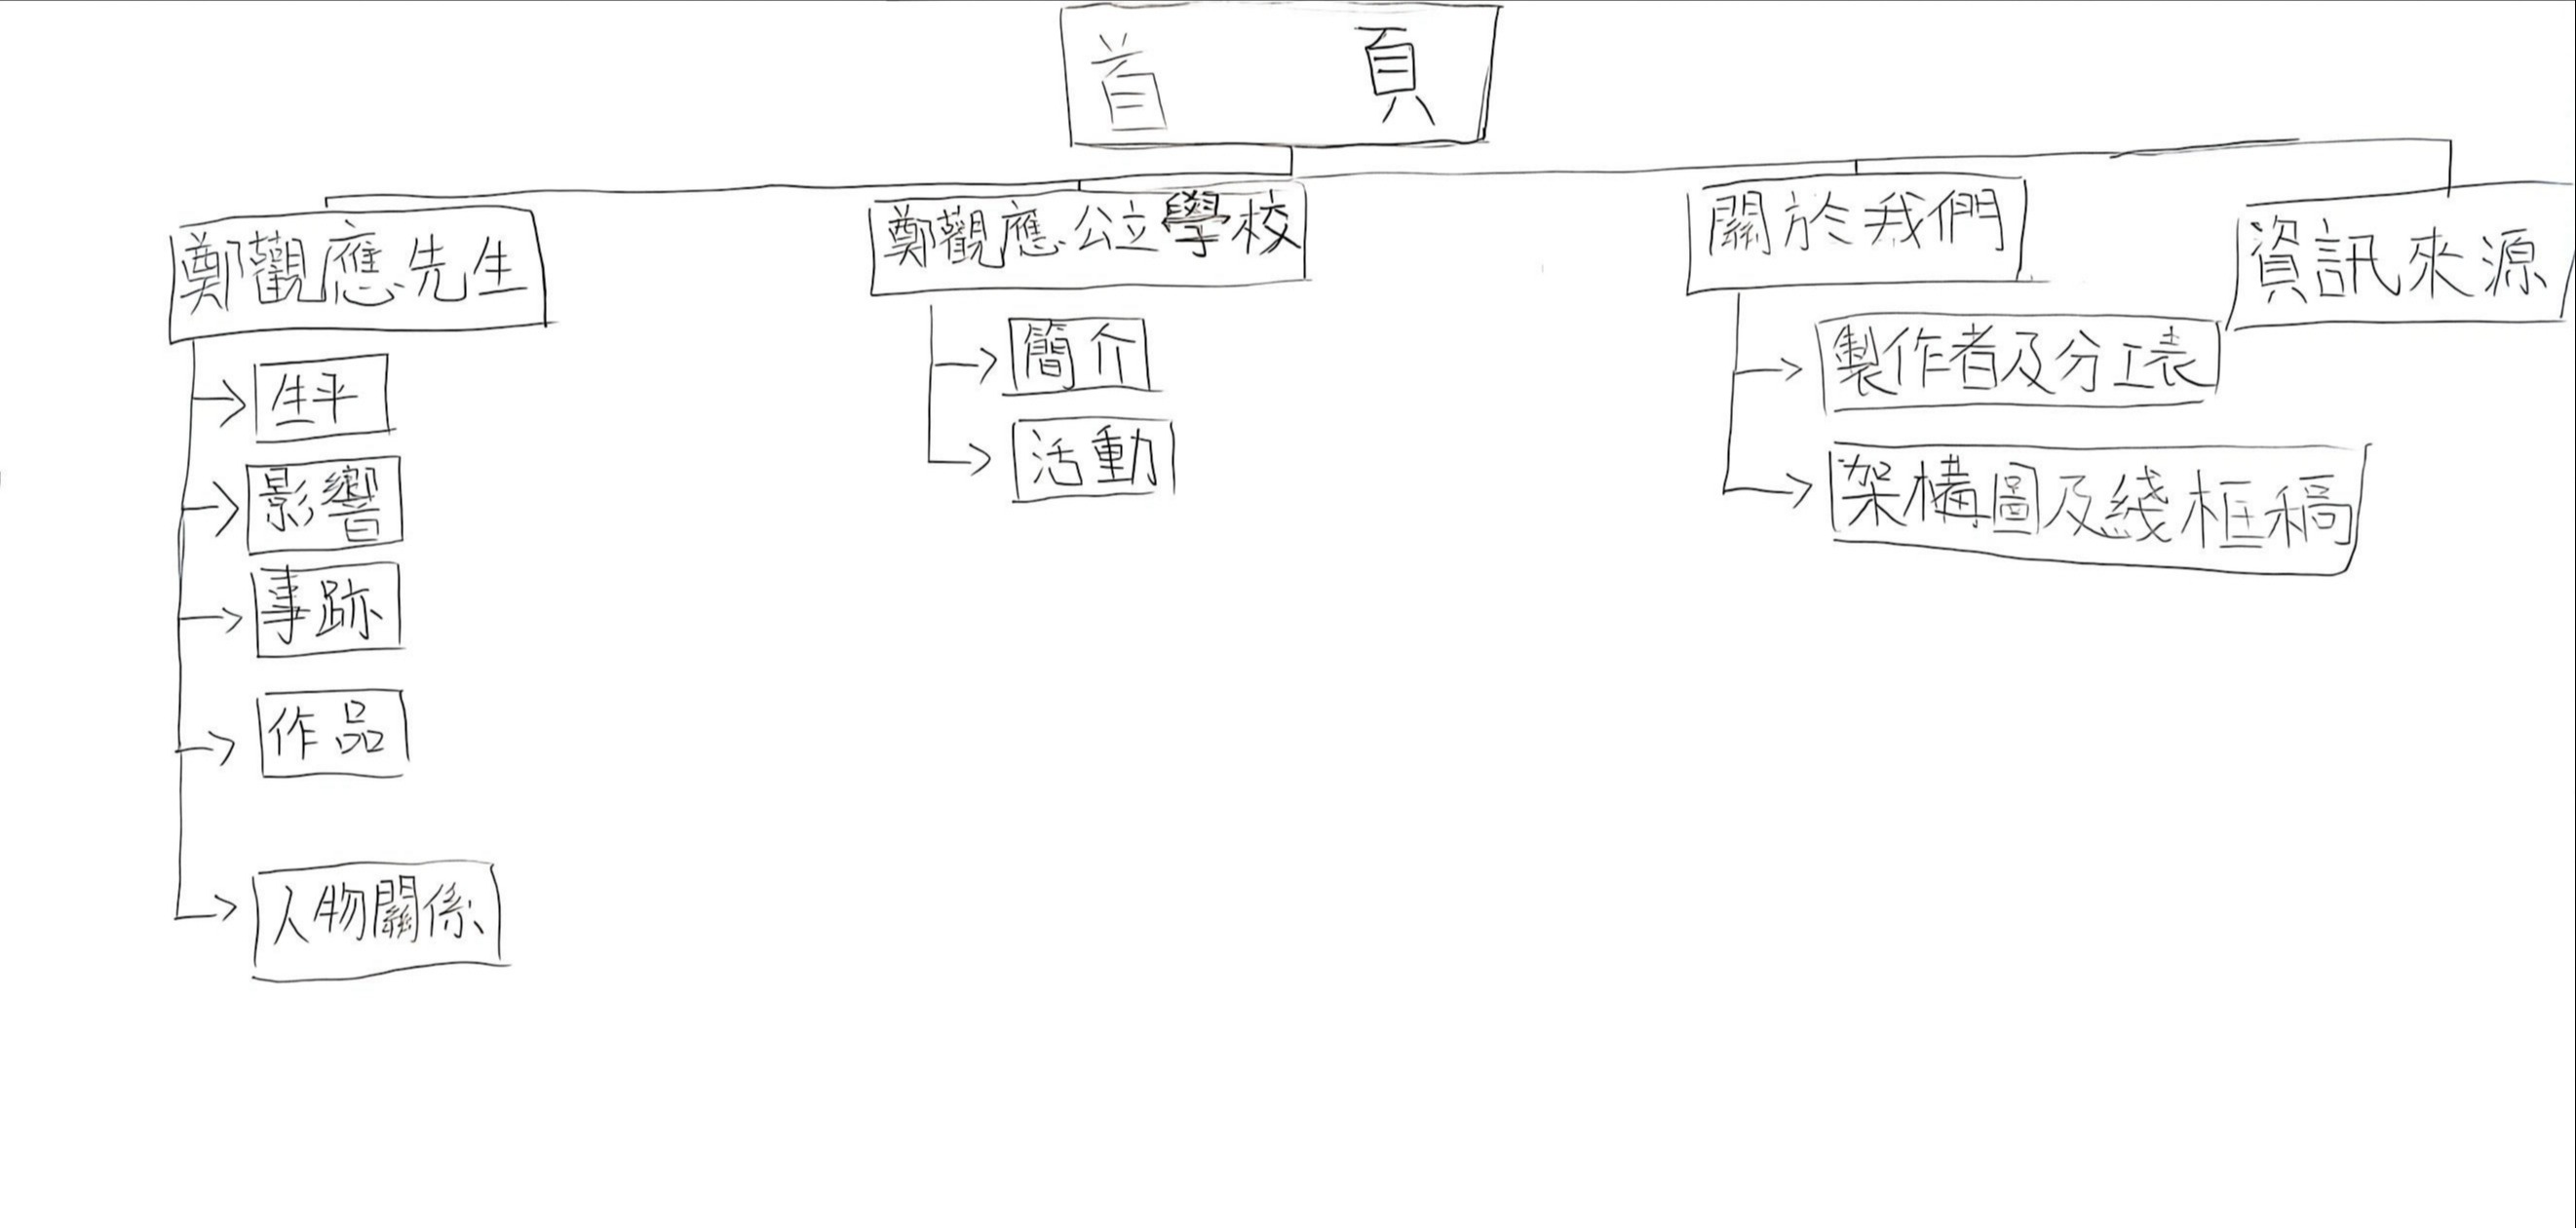 首頁
鄭觀應先生
生平
影響
事跡
作品
人物關係
鄭觀應公立學校
簡介
活動
關於我們
製作者及分工表
架構圖及綫框稿
資訊來源